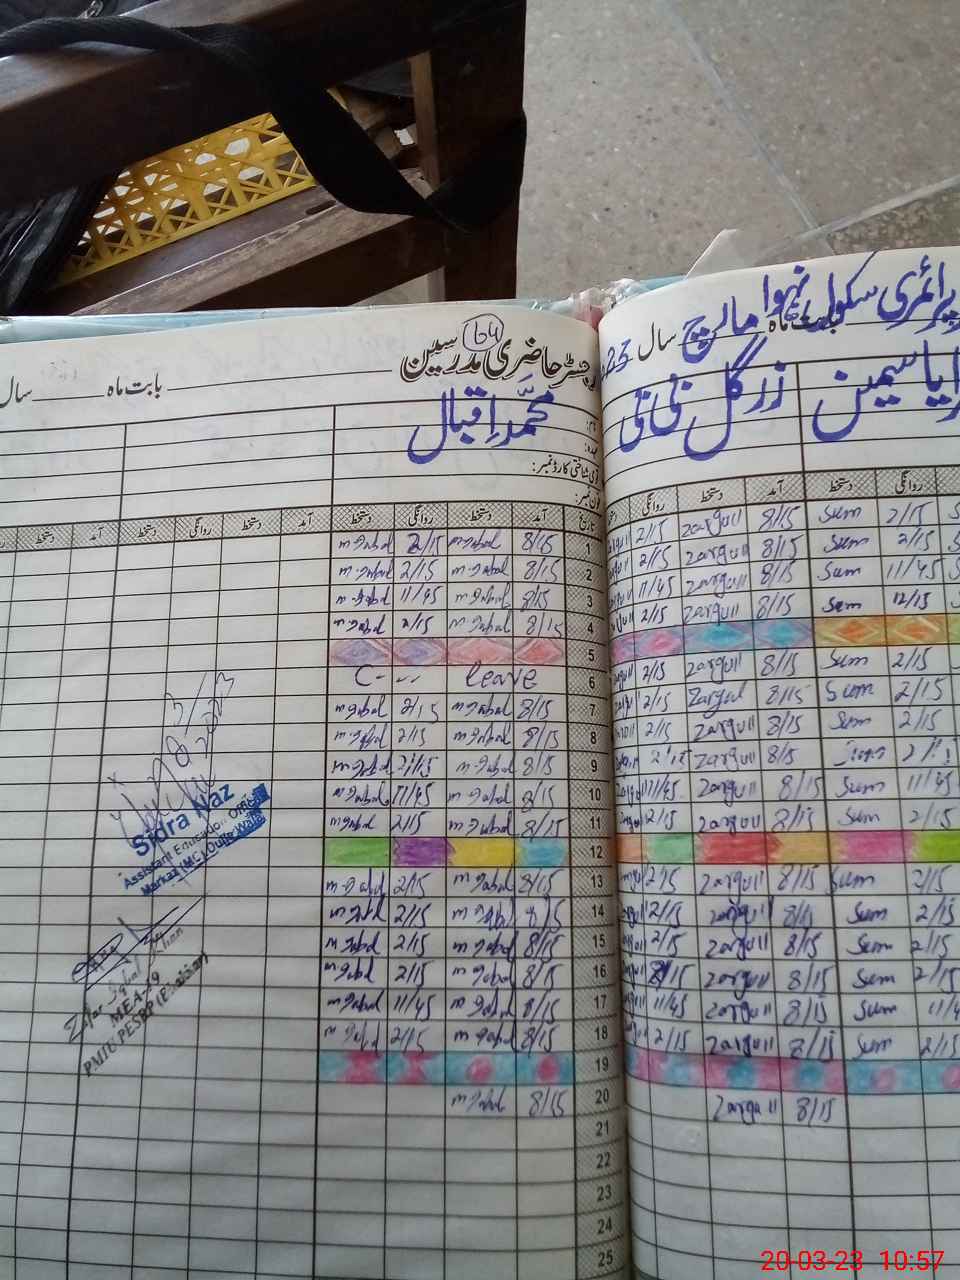 پرائمری سکول نہوا مارچ
بابت ماہ سال 23
زرگل بی بی
یاسمین
آمد دستخط روانگی
8/15 zargull 2/15 Sum 2/15
8/15 zargull 2/15 Sum 2/15
8/15 zargull 11/45 Sum 11/45
8/15 zargull 2/15 Sum 12/15
8/15 zargull 2/15 Sum 2/15
8/15 zargul 2/15 Sum 2/15
8/15 zargull 2/15 Sum 2/15
8/5 zargull 2/15
8/15 zargull 11/45 Sum 11/45
8/15 zargull 2/15 Sum 2/15
8/15 zargull 2/15 Sum 2/15
8/15 zargull 2/15 Sum 2/15
8/15 zargull 2/15 Sum 2/15
8/15 zargull 2/15 Sum 2/15
8/15 zargull 11/45 Sum 11/4
8/15 zargull 2/15 Sum 2/15
8/15 zargull
رجسٹر حاضری مدرسین
164
بابت ماہ سال
محمد اقبال
نام:
عہدہ:
قومی شناختی کارڈ نمبر:
فون نمبر:
تاریخ آمد دستخط روانگی دستخط آمد دستخط روانگی دستخط
1 8/15 m Iqbal 2/15 m Iqbal
2 8/15 m Iqbal 2/15 m Iqbal
3 8/15 m Iqbal 11/45 m Iqbal
4 8/15 m Iqbal 2/15 m Iqbal
5
6 C- leave
7 8/15 m Iqbal 2/15 m Iqbal
8 8/15 m Iqbal 2/15 m Iqbal
9 8/15 m Iqbal 2/15 m Iqbal
10 8/15 m Iqbal 11/45 m Iqbal
11 8/15 m Iqbal 2/15 m Iqbal
12
13 8/15 m Iqbal 2/15 m Iqbal
14 8/15 m Iqbal 2/15 m Iqbal
15 8/15 m Iqbal 2/15 m Iqbal
16 8/15 m Iqbal 2/15 m Iqbal
17 8/15 m Iqbal 11/45 m Iqbal
18 8/15 m Iqbal 2/15 m Iqbal
19
20 8/15 m Iqbal
21
22
23
24
25
Sidra Naz
Assistant Education Officer
Markaz (MC)
Zafar Iqbal Khan
MEA-19
PMIU PESRP
20-03-23 10:57